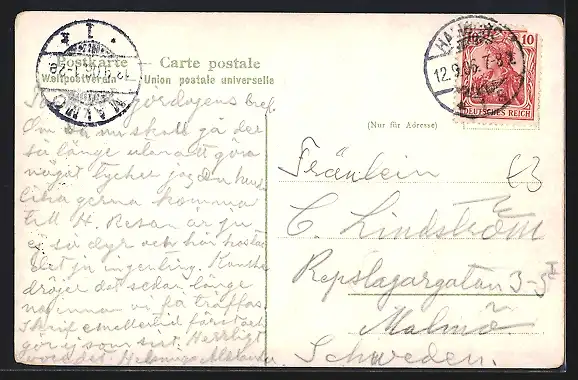 Postkarte — Carte postale
Weltpostverein Union postale universelle
(Nur für Adresse)
MALMÖ
HAMBURG
12.9.06. 7-8
10
DEUTSCHES REICH
gårdagens bref.
Om du nu skall gå der
så länge utan att göra
något tycker jag Du
lika gerna komma
till H. Resan är ju
ej så dyr och här kostar
det ju ingenting. Kanske
dröjer det sedan länge
innan vi få träffas.
Skrif emellertid först och
gör ej som sist. Herrligt
Fräulein
C. Lindström
Repslagargatan 3-5 I
Malmö
Schweden.